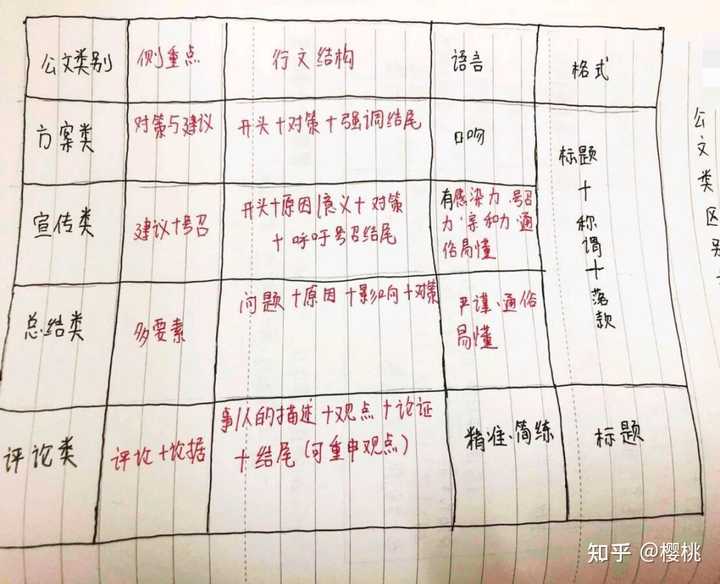 公文类别 侧重点 行文结构 语言 格式
方案类 对策与建议 开头+对策+强调结尾 口吻
宣传类 建议+号召 开头+原因|意义+对策
+呼吁号召结尾
有感染力·号召
力·亲和力·通
俗易懂
总结类 多要素 问题+原因+影响+对策
严谨·通俗
易懂
标题+称谓+落款
评论类 评论+论据
事/人的描述+观点+论证
+结尾(可重申观点)
精准·简练 标题
公文类区
知乎 @樱桃